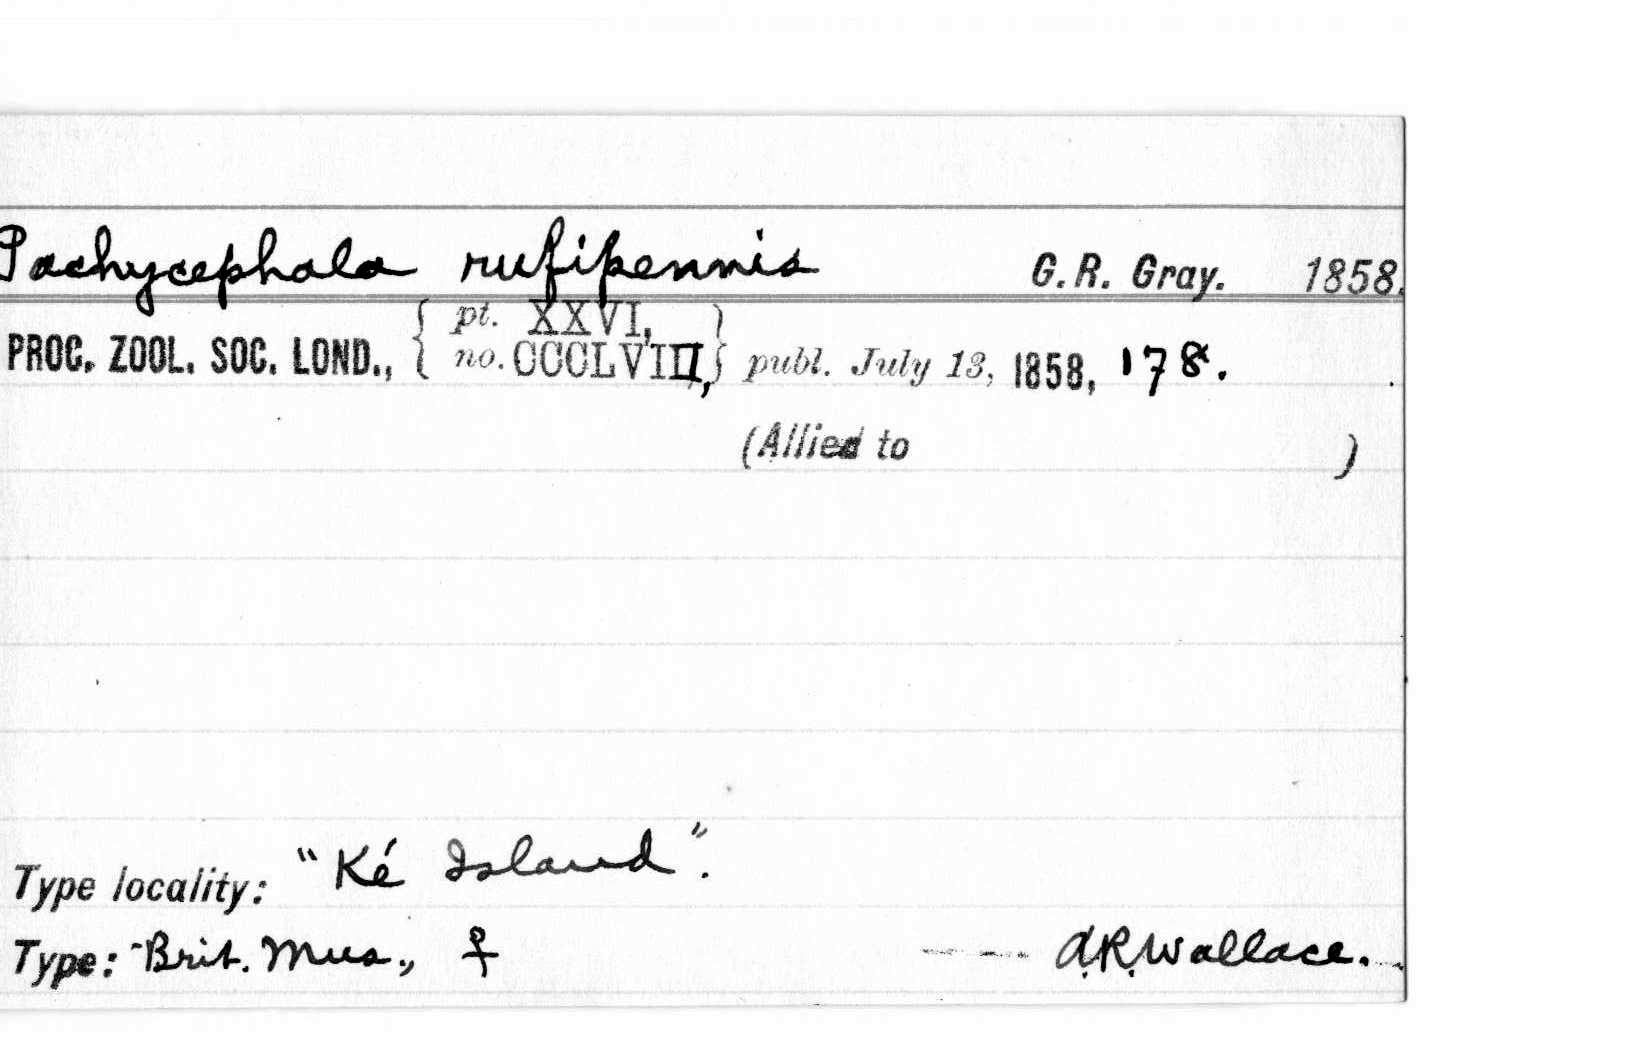 Pachycephala rufipennis G. R. Gray. 1858.
PROC. ZOOL. SOC. LOND., { pt. XXVI, no. CCCLVIII, } publ. July 13, 1858, 178.
(Allied to )
Type locality: "Ké Island".
Type: Brit. Mus., ♀ A.R. Wallace.